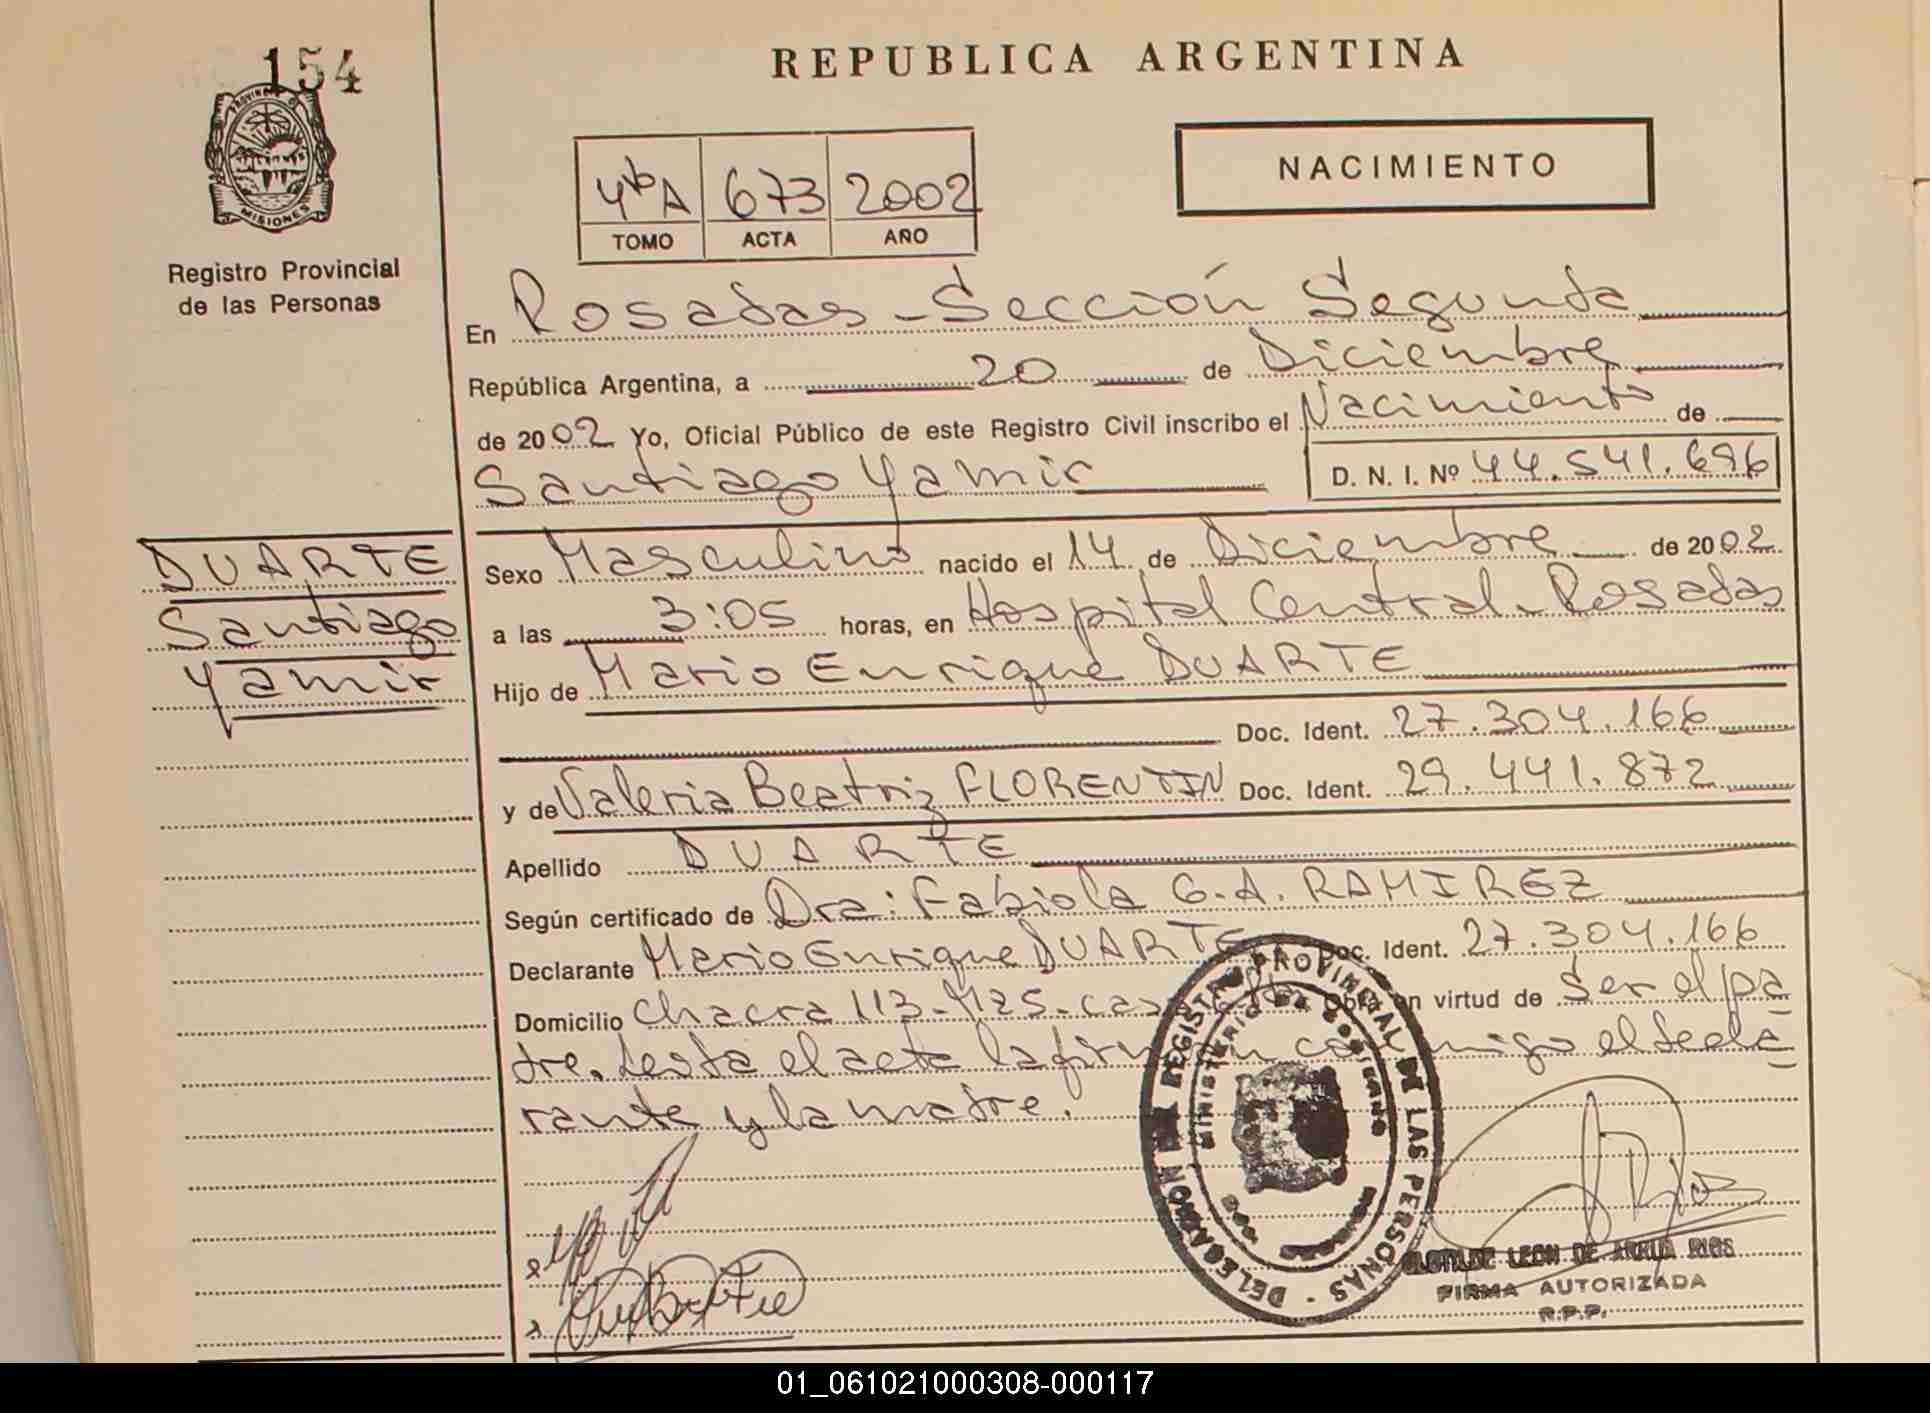 154
REPUBLICA ARGENTINA
PROVINCIA
MISIONES
Registro Provincial
de las Personas
4toA 673 2002
TOMO ACTA AÑO
NACIMIENTO
En Posadas - Sección Segunda
República Argentina, a 20 de Diciembre
de 2002 Yo, Oficial Público de este Registro Civil inscribo el Nacimiento de
Santiago Yamir D. N. I. Nº 44.541.696
DUARTE
Santiago
Yamir
Sexo Masculino nacido el 14 de Diciembre de 2002
a las 3:05 horas, en Hospital Central - Posadas
Hijo de Mario Enrique DUARTE
Doc. Ident. 27.304.166
y de Valeria Beatriz FLORENTIN Doc. Ident. 29.441.872
Apellido DUARTE
Según certificado de Dra: Fabiola G.A. RAMIREZ
Declarante Mario Enrique DUARTE Doc. Ident. 27.304.166
Domicilio Chacra 113-4125- Obra en virtud de Ser el pa
dre. Leída el acta la firman conmigo el decla
rante y la madre.
DELEGACION REGISTRO PROVINCIAL DE LAS PERSONAS
MINISTERIO DE GOBIERNO
LEON DE RIOS
FIRMA AUTORIZADA
R.P.P.
01_061021000308-000117